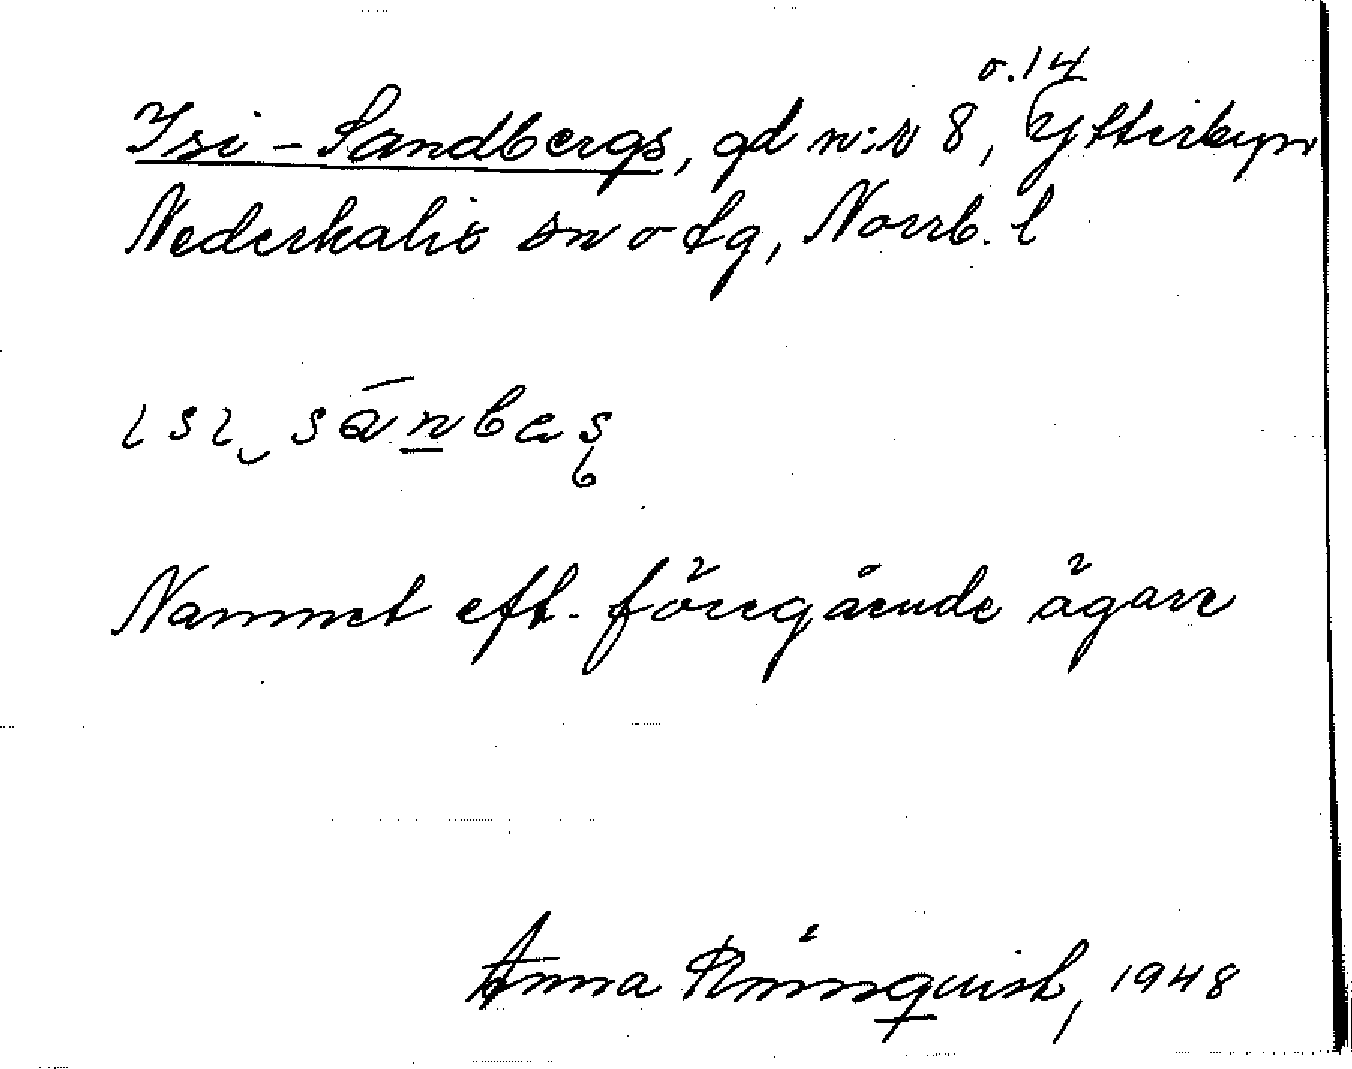 Isi-Sandbergs, gd n:r 8, o. 14 Ytterbyn
Nederkalix sn o tg, Norrb. l
ısı sānbeş
Namnet eft. föregående ägare
Anna Rönnquist, 1948